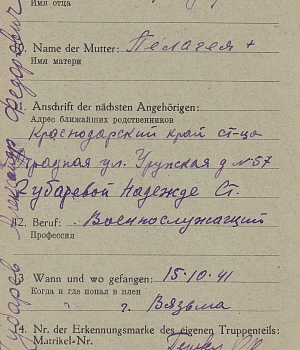 Имя отца
Name der Mutter: Пелагея +
Имя матери
Anschrift der nächsten Angehörigen:
Адрес ближайших родственников
Краснодарский край ст-ца
ул. Урупская д №57
Губаревой Надежде Ст.
12. Beruf: Военнослужащий
Профессия
13 Wann und wo gefangen: 15.10.41
Когда и где попал в плен
" " г. Вязьма
14. Nr. der Erkennungsmarke des eigenen Truppenteils:
Matrikel-Nr.
Губарев Александр Федорович